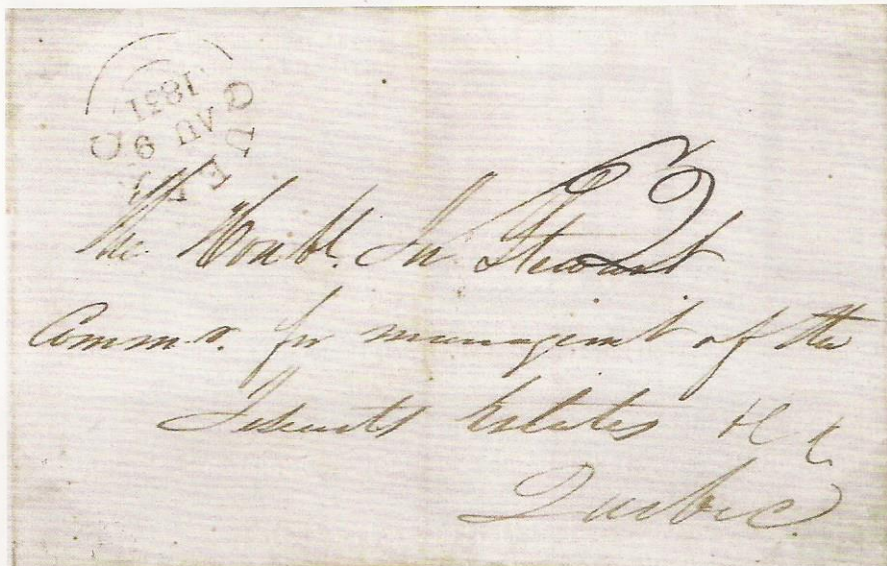 QUEBEC
AU 9
1851
2
The Honbl. Jn. Stewart
Commr. for managemt of the
Jesuits Estates &c &
Quebec